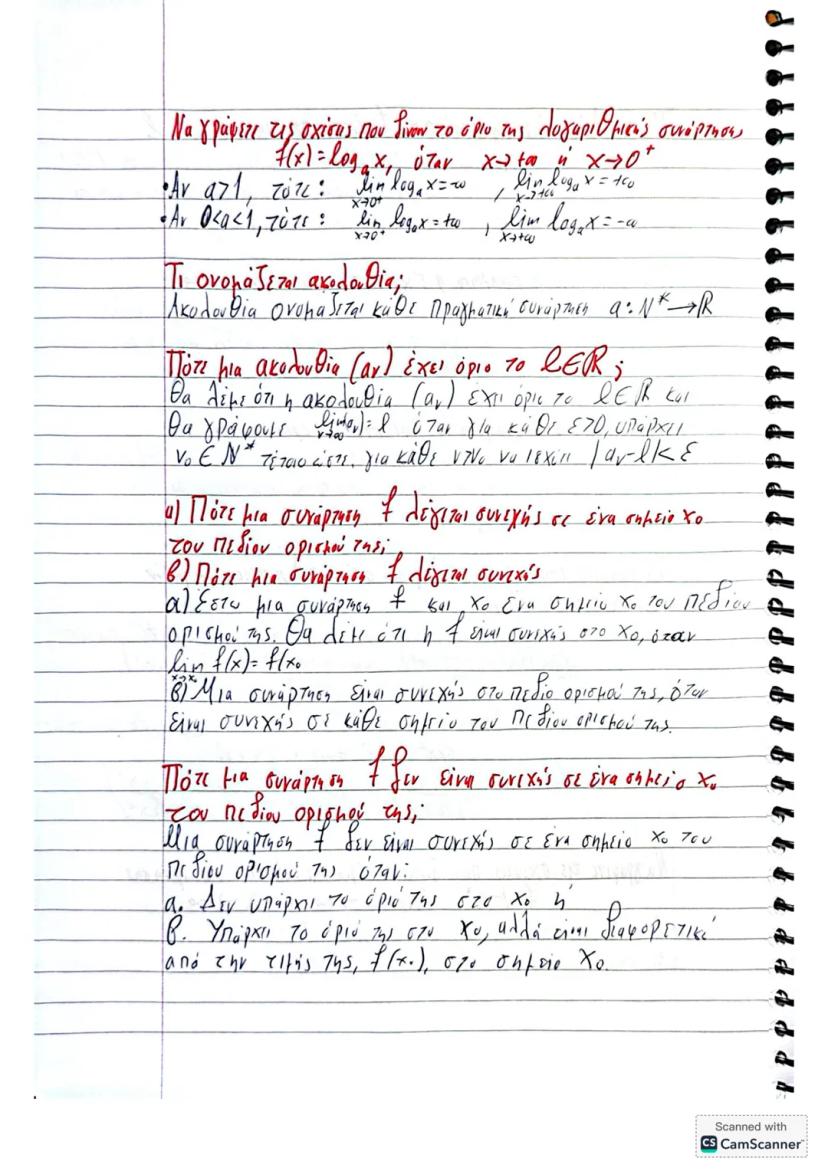 Να γράψετε τις σχέσεις που δίνουν το όριο της λογαριθμικής συνάρτησης
f(x) = logₐx, όταν x→+∞ ή x→0⁺
• Αν α>1, τότε: lim x→0⁺ logₐx = -∞, lim x→+∞ logₐx = +∞
• Αν 0<α<1, τότε: lim x→0⁺ logₐx = +∞, lim x→+∞ logₐx = -∞
Τι ονομάζεται ακολουθία;
Ακολουθία ονομάζεται κάθε πραγματική συνάρτηση α: Ν* → ℝ
Πότε μια ακολουθία (αν) έχει όριο το ℓ∈ℝ;
Θα λέμε ότι η ακολουθία (αν) έχει όριο το ℓ∈ℝ και
θα γράφουμε lim ν→∞ (αν) = ℓ όταν για κάθε ε>0, υπάρχει
ν₀ ∈ Ν* τέτοιο ώστε, για κάθε ν>ν₀ να ισχύει |αν-ℓ|<ε
α) Πότε μια συνάρτηση f λέγεται συνεχής σε ένα σημείο x₀
του πεδίου ορισμού της;
β) Πότε μια συνάρτηση f λέγεται συνεχής
α) Έστω μια συνάρτηση f και x₀ ένα σημείο x₀ του πεδίου
ορισμού της. Θα λέμε ότι η f είναι συνεχής στο x₀, όταν
lim x→x₀ f(x) = f(x₀
β) Μια συνάρτηση είναι συνεχής στο πεδίο ορισμού της, όταν
είναι συνεχής σε κάθε σημείο του πεδίου ορισμού της.
Πότε μια συνάρτηση f δεν είναι συνεχής σε ένα σημείο x₀
του πεδίου ορισμού της;
Μια συνάρτηση f δεν είναι συνεχής σε ένα σημείο x₀ του
πεδίου ορισμού της όταν:
α. Δεν υπάρχει το όριό της στο x₀ ή
β. Υπάρχει το όριό της στο x₀, αλλά είναι διαφορετικό
από την τιμής της, f(x₀), στο σημείο x₀.
Scanned with
CS CamScanner